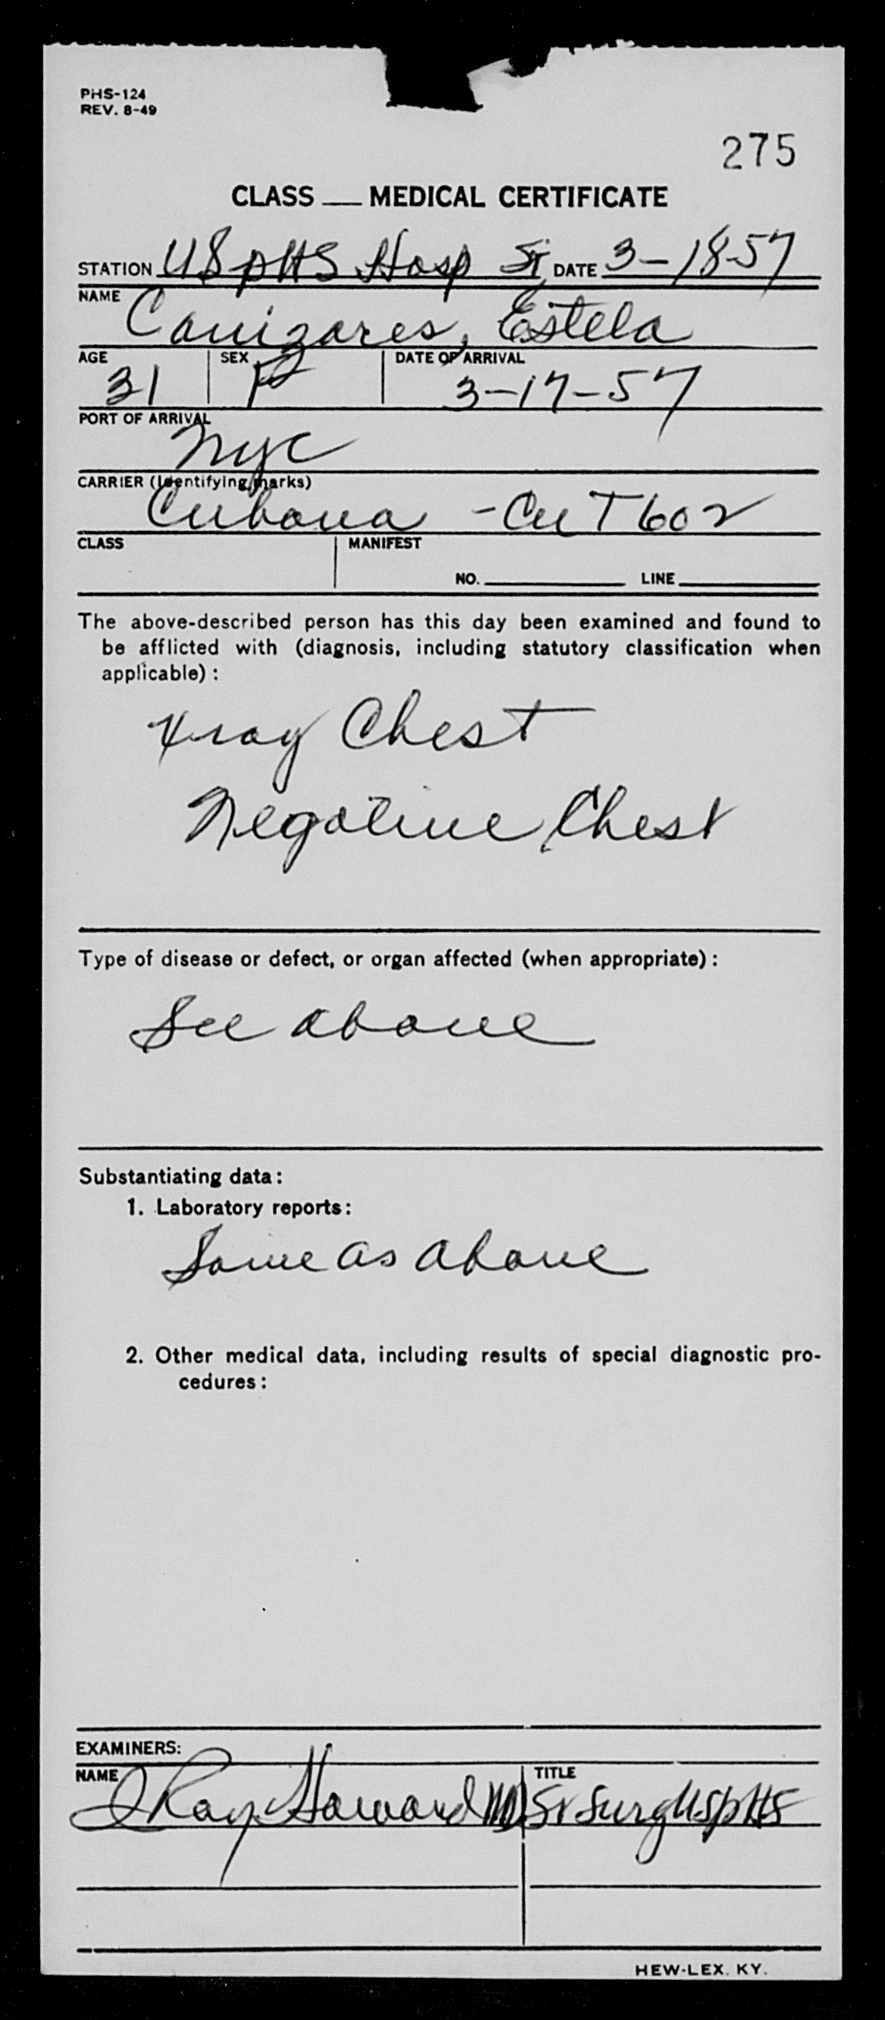 PHS-124
REV. 8-49
275
CLASS ___ MEDICAL CERTIFICATE
STATION USPHS Hosp SI DATE 3-18-57
NAME Canizares, Estela
AGE 31 SEX F DATE OF ARRIVAL 3-17-57
PORT OF ARRIVAL NYC
CARRIER (Identifying marks) Cubana - Cu T 602
CLASS MANIFEST
NO. ___ LINE ___
The above-described person has this day been examined and found to
be afflicted with (diagnosis, including statutory classification when
applicable):
Xray Chest
Negative Chest
Type of disease or defect, or organ affected (when appropriate):
See above
Substantiating data:
1. Laboratory reports:
Same as above
2. Other medical data, including results of special diagnostic pro-
cedures:
EXAMINERS:
NAME Ray Howard MD TITLE Sr Surg USPHS
HEW-LEX. KY.